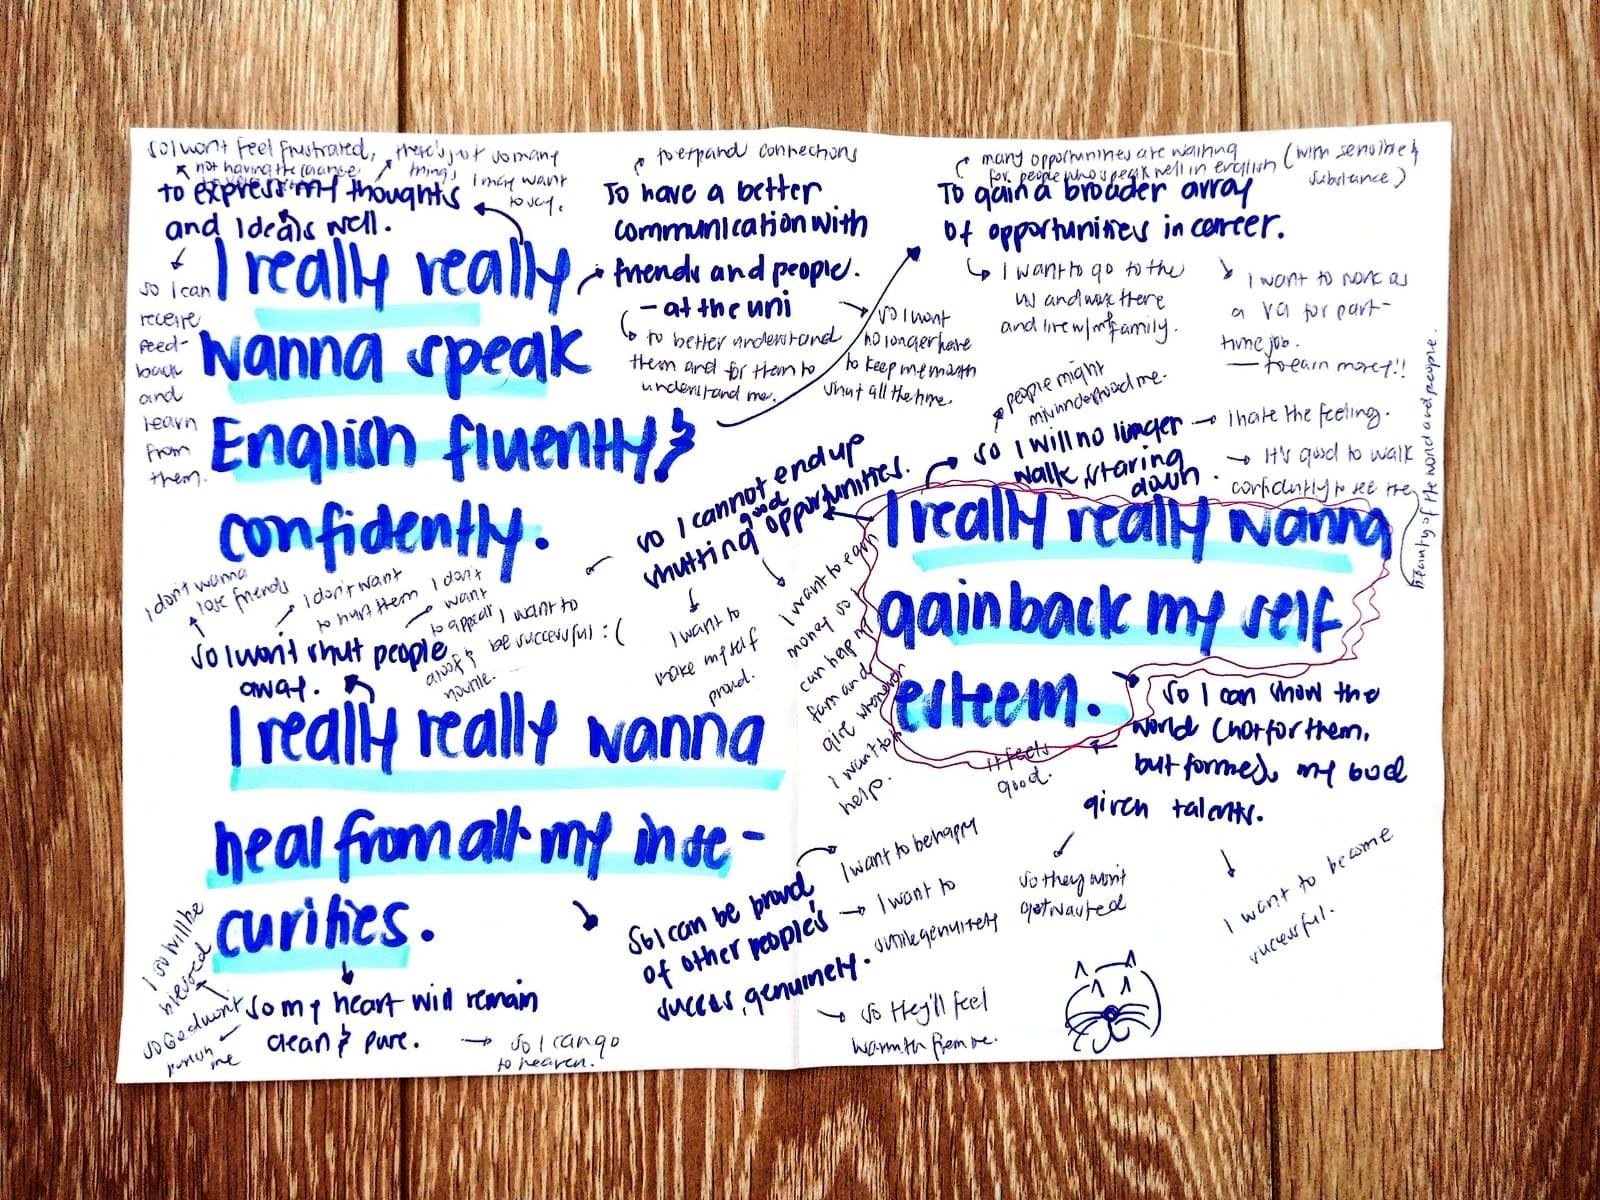 so I won't feel frustrated,
not having the chance
there's just so many
things I may want
to say.
to express my thoughts
and ideals well.
so I can
receive
feed-
back
and
learn
from
them.
I really really
wanna speak
English fluently &
confidently.
to expand connections
To have a better
communication with
friends and people.
- at the uni
to better understand
them and for them to
understand me.
so I wont
no longer have
to keep my mouth
shut all the time.
many opportunities are waiting
for people who speak well in english (with sensible &
substance)
To gain a broader array
of opportunities in career.
I want to go to the
US and work there
and live w/ my family.
I want to work as
a VA for part-
time job.
— to earn money!!
people might
misunderstood me.
so I will no longer
walk staring
down.
I hate the feeling.
It's good to walk
confidently to see the
beauty of the world and people.
I really really wanna
gain back my self
esteem.
so I cannot end up
shutting good opportunities.
I want to
be successful :(
I want to
make myself
proud.
I want to earn
money so I
can help my
fam and
give whenever
I want to
help.
so I can show the
world (not for them,
but for me), my God
given talents.
it feels
good.
so they won't
get wasted
I want to become
successful.
I don't wanna
lose friends
I don't want
to hurt them
I don't
want
to appear
aloof &
hostile.
so I won't shut people
away.
I really really wanna
heal from all my inse-
curities.
so my heart will remain
clean & pure.
so I can go
to heaven.
so God won't
punish
me
I so will be
blessed
So I can be proud
of other people's
success, genuinely.
I want to be happy
I want to
smile genuinely
so they'll feel
warmth from me.